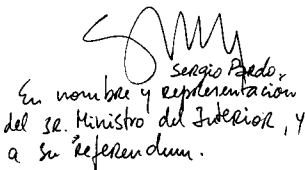 Sergio Pardo,
En nombre y representación
del SR. Ministro del Interior, y
a su referendum.